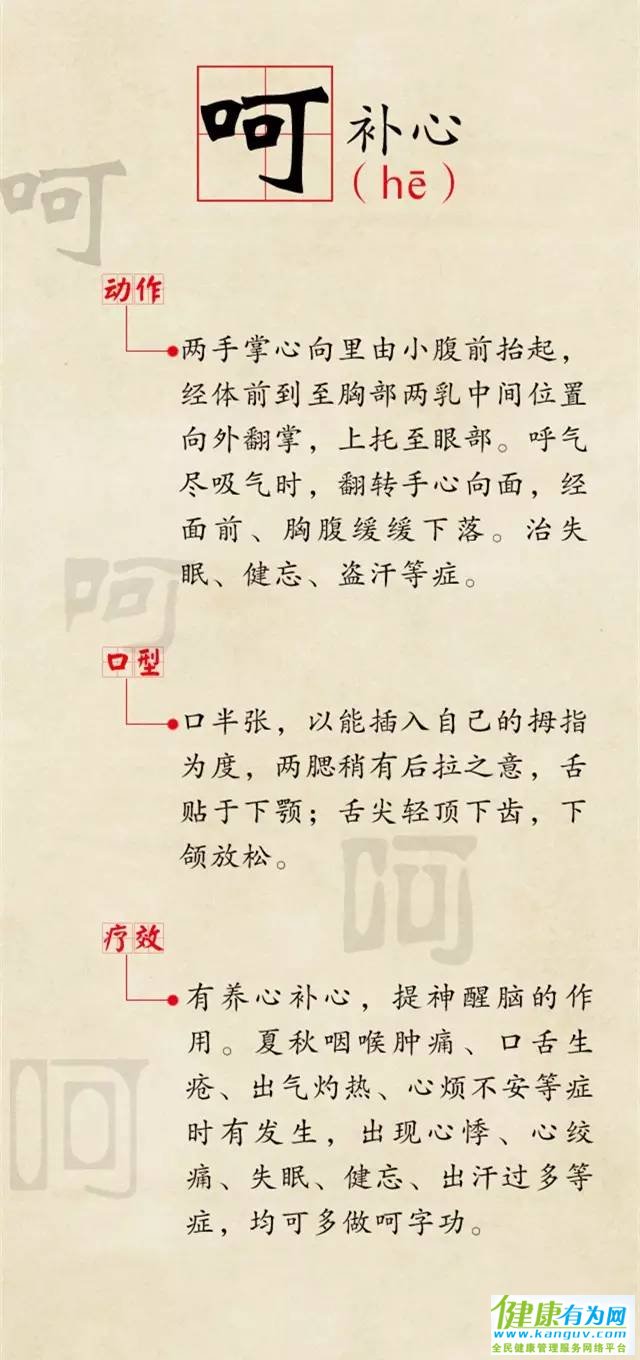 呵 补心
(hē)
呵
动作
两手掌心向里由小腹前抬起，
经体前到至胸部两乳中间位置
向外翻掌，上托至眼部。呼气
尽吸气时，翻转手心向面，经
面前、胸腹缓缓下落。治失
眠、健忘、盗汗等症。
呵
口型
口半张，以能插入自己的拇指
为度，两腮稍有后拉之意，舌
贴于下颚；舌尖轻顶下齿，下
颌放松。
呵
疗效
有养心补心，提神醒脑的作
用。夏秋咽喉肿痛、口舌生
疮、出气灼热、心烦不安等症
时有发生，出现心悸、心绞
痛、失眠、健忘、出汗过多等
症，均可多做呵字功。
呵
健康有为网
www.kanguv.com
全民健康管理服务网络平台